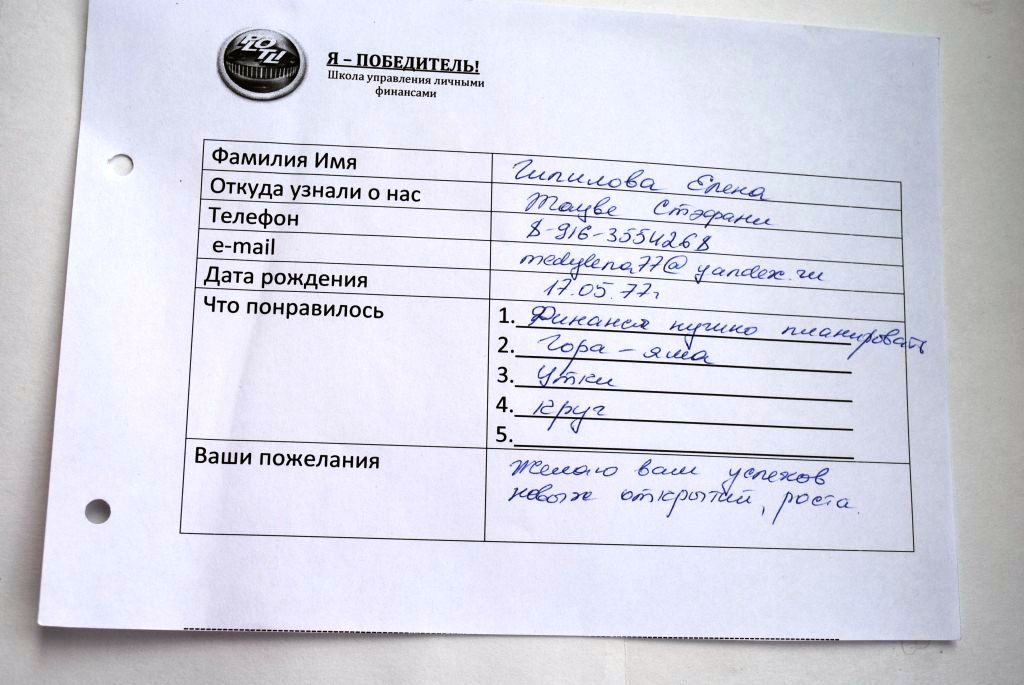 Я – ПОБЕДИТЕЛЬ!
Школа управления личными
финансами
Фамилия Имя Гипилова Елена
Откуда узнали о нас Стэфани
Телефон 8-916-3554268
e-mail medylena77@yandex.ru
Дата рождения 17.05.77г
Что понравилось
1. Финансы нужно планировать
2. Гора – яма
3. Утки
4. круг
5.
Ваши пожелания Желаю вам успехов
новых открытий, роста.